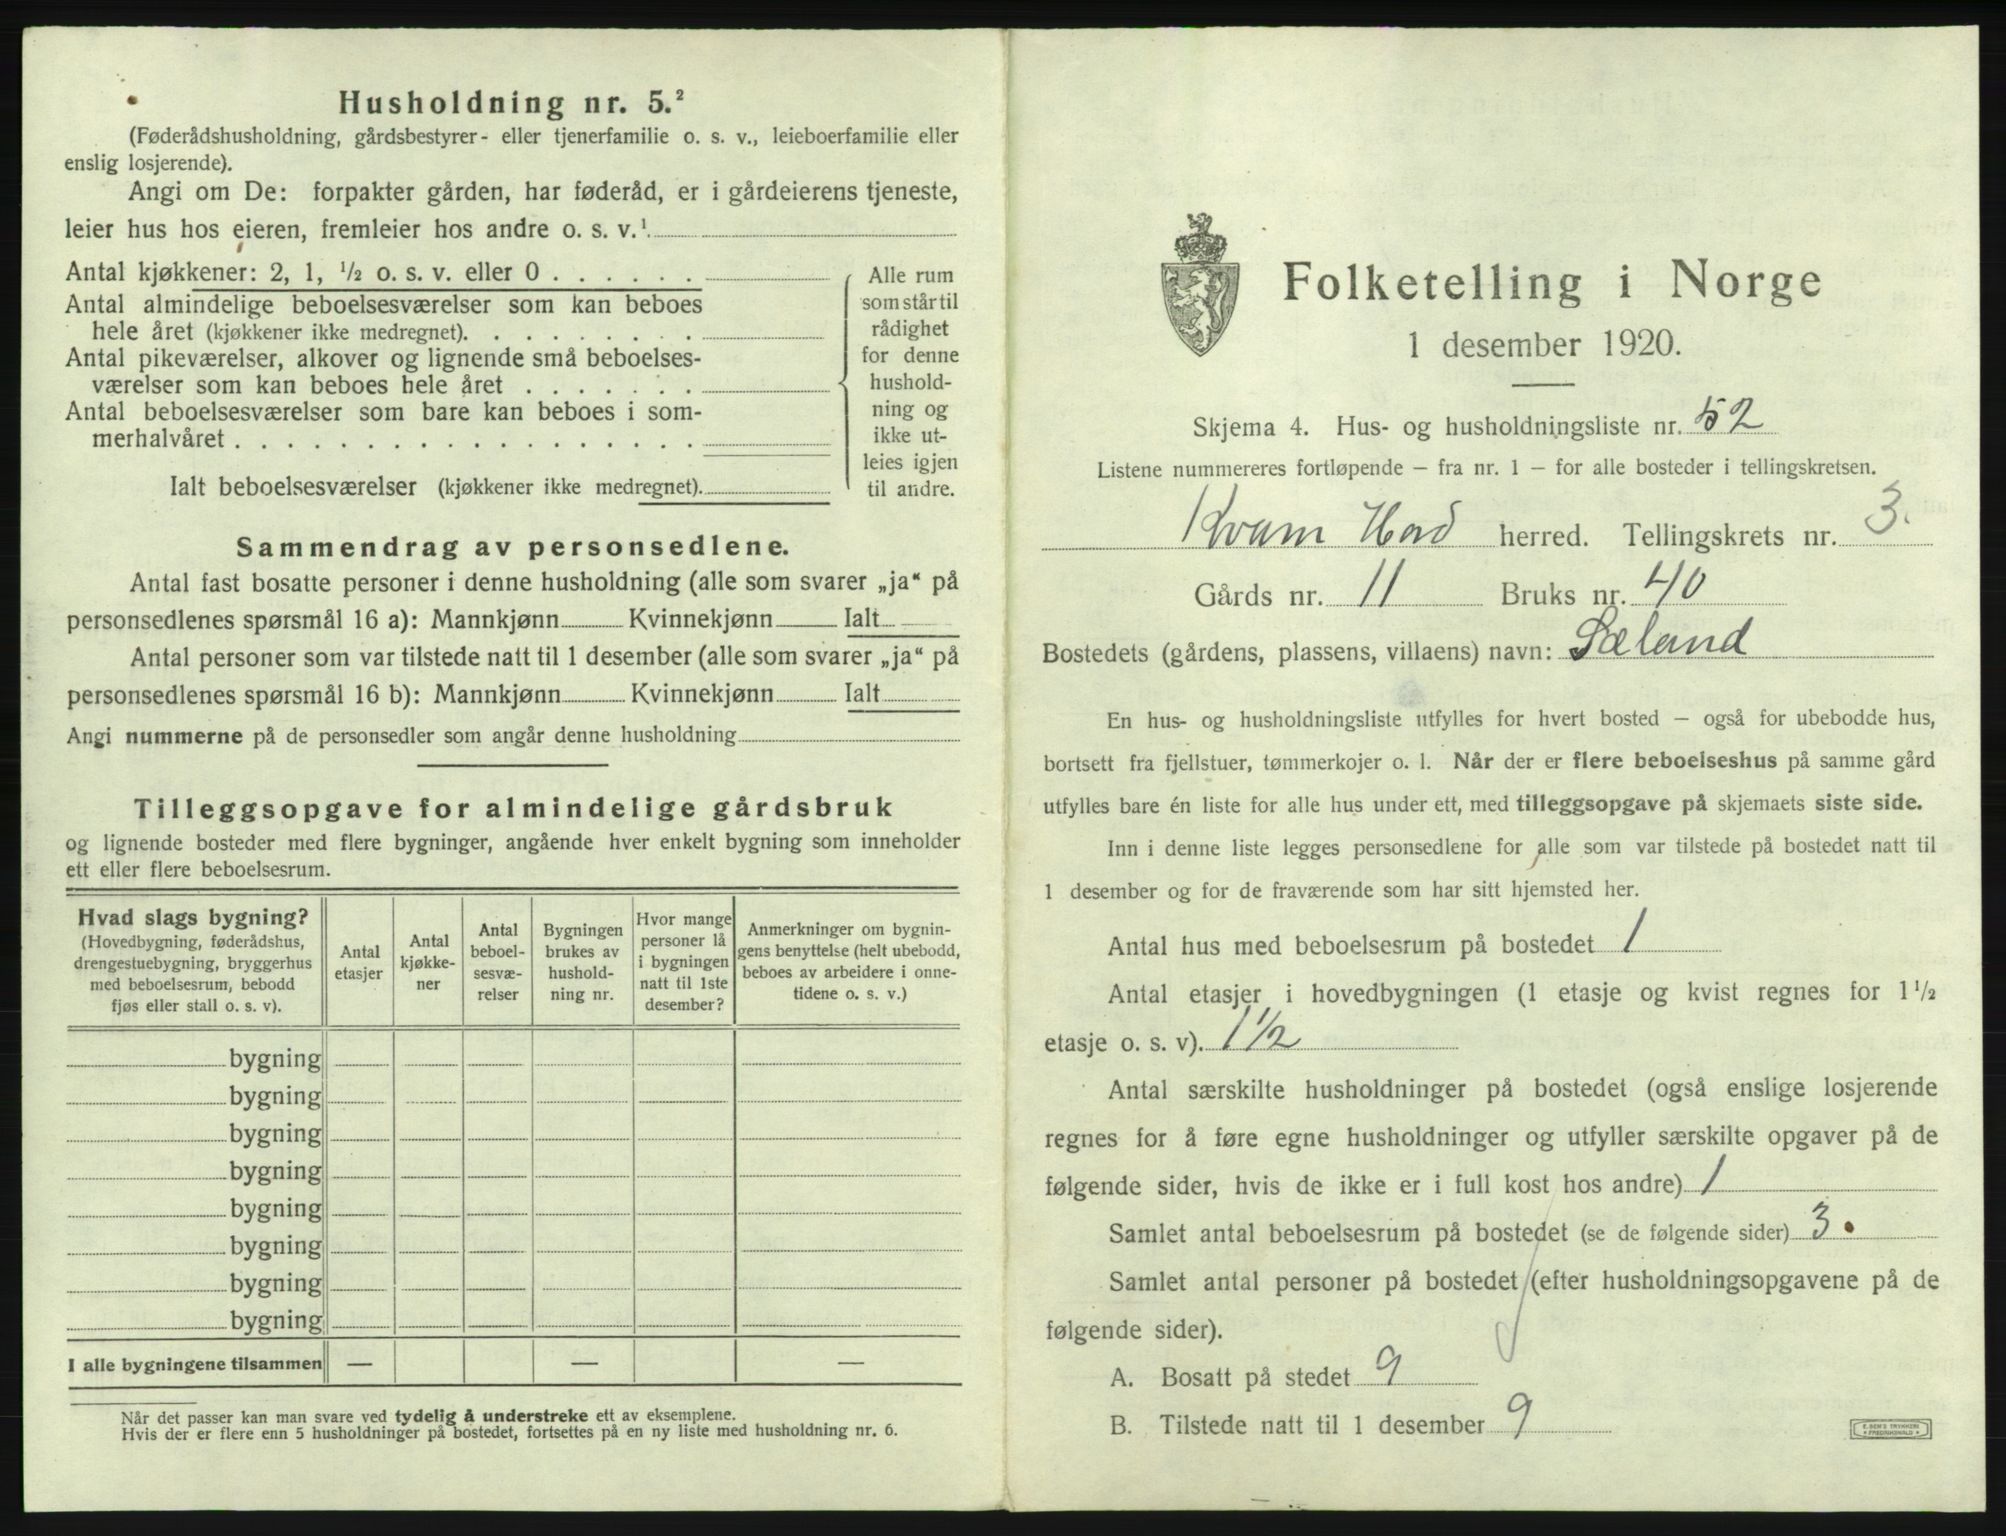 Husholdning nr. 5.²
(Føderådshusholdning, gårdsbestyrer- eller tjenerfamilie o. s. v., leieboerfamilie eller
enslig losjerende).
Angi om De: forpakter gården, har føderåd, er i gårdeierens tjeneste,
leier hus hos eieren, fremleier hos andre o. s. v.¹
Antal kjøkkener: 2, 1, ½ o. s. v. eller 0 . . . . . .
Antal almindelige beboelsesværelser som kan beboes
hele året (kjøkkener ikke medregnet). . . . . . . . .
Antal pikeværelser, alkover og lignende små beboelses-
værelser som kan beboes hele året . . . . . . .
Antal beboelsesværelser som bare kan beboes i som-
merhalvåret . . . . . . . . . . . . . . . . . .
Ialt beboelsesværelser (kjøkkener ikke medregnet).
Alle rum
som står til
rådighet
for denne
hushold-
ning og
ikke ut-
leies igjen
til andre.
Sammendrag av personsedlene.
Antal fast bosatte personer i denne husholdning (alle som svarer „ja“ på
personsedlenes spørsmål 16 a): Mannkjønn Kvinnekjønn Ialt
Antal personer som var tilstede natt til 1 desember (alle som svarer „ja“ på
personsedlenes spørsmål 16 b): Mannkjønn Kvinnekjønn Ialt
Angi nummerne på de personsedler som angår denne husholdning
Tilleggsopgave for almindelige gårdsbruk
og lignende bosteder med flere bygninger, angående hver enkelt bygning som inneholder
ett eller flere beboelsesrum.
Hvad slags bygning?
(Hovedbygning, føderådshus,
drengestuebygning, bryggerhus
med beboelsesrum, bebodd
fjøs eller stall o. s. v).
Antal
etasjer
Antal
kjøkke-
ner
Antal
beboel-
sesvæ-
relser
Bygningen
brukes av
hushold-
ning nr.
Hvor mange
personer lå
i bygningen
natt til 1ste
desember?
Anmerkninger om bygnin-
gens benyttelse (helt ubebodd,
beboes av arbeidere i onne-
tidene o. s. v.)
bygning
bygning
bygning
bygning
bygning
bygning
bygning
bygning
I alle bygningene tilsammen — — —
Når det passer kan man svare ved tydelig å understreke ett av eksemplene.
Hvis der er flere enn 5 husholdninger på bostedet, fortsettes på en ny liste med husholdning nr. 6.
Folketelling i Norge
1 desember 1920.
Skjema 4. Hus- og husholdningsliste nr. 52
Listene nummereres fortløpende — fra nr. 1 — for alle bosteder i tellingskretsen.
Kvam Hord herred. Tellingskrets nr. 3.
Gårds nr. 11 Bruks nr. 40
Bostedets (gårdens, plassens, villaens) navn: Sæland
En hus- og husholdningsliste utfylles for hvert bosted — også for ubebodde hus,
bortsett fra fjellstuer, tømmerkojer o. l. Når der er flere beboelseshus på samme gård
utfylles bare én liste for alle hus under ett, med tilleggsopgave på skjemaets siste side.
Inn i denne liste legges personsedlene for alle som var tilstede på bostedet natt til
1 desember og for de fraværende som har sitt hjemsted her.
Antal hus med beboelsesrum på bostedet 1
Antal etasjer i hovedbygningen (1 etasje og kvist regnes for 1½
etasje o. s. v). 1½
Antal særskilte husholdninger på bostedet (også enslige losjerende
regnes for å føre egne husholdninger og utfyller særskilte opgaver på de
følgende sider, hvis de ikke er i full kost hos andre) 1
Samlet antal beboelsesrum på bostedet (se de følgende sider) 3.
Samlet antal personer på bostedet (efter husholdningsopgavene på de
følgende sider).
A. Bosatt på stedet 9
B. Tilstede natt til 1 desember 9